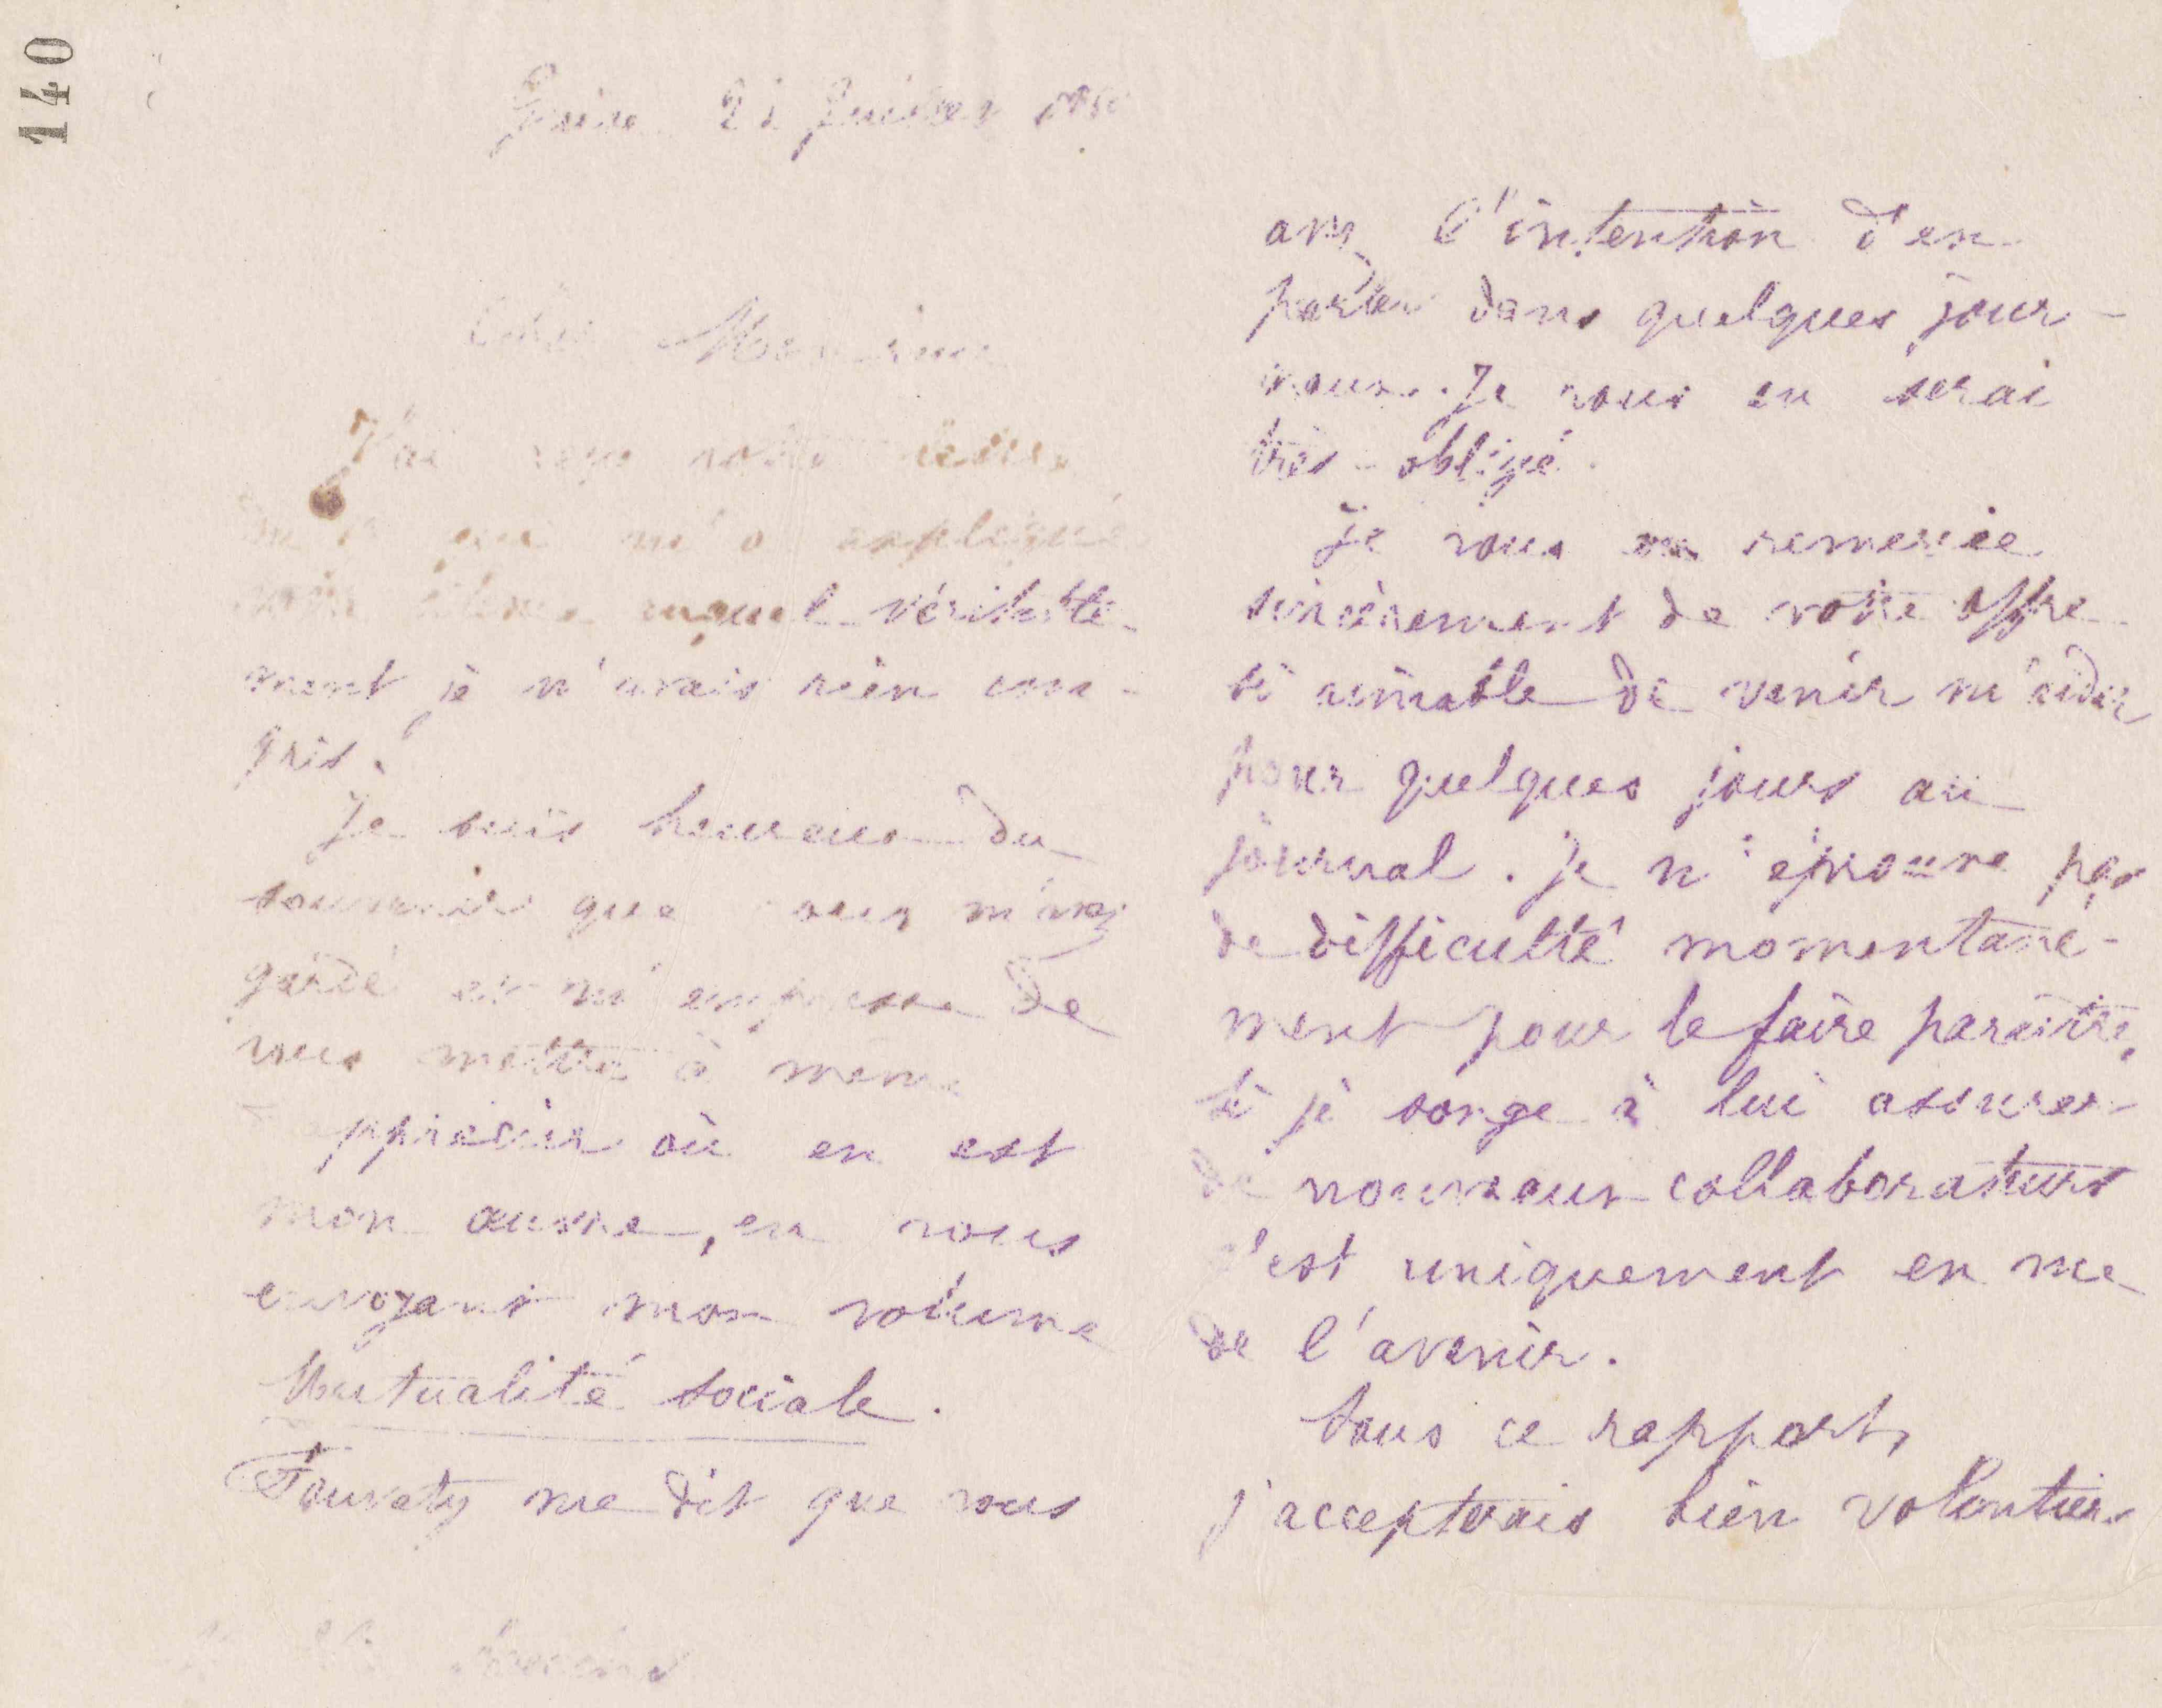 140
Guise 21 Juillet
Cher Monsieur
J'ai reçu votre lettre
qui m'a expliqué
votre silence auquel véritable-
ment je n'avais rien com-
pris.
Je suis heureux du
souvenir que vous m'avez
gardé et m'empresse de
vous mettre à même
d'apprécier où en est
mon œuvre, en vous
envoyant mon volume
Mutualité sociale.
Fauvety me dit que vous
avez l'intention d'en
parler dans quelques jour-
naux. Je vous en serai
très-obligé.
Je vous remercie
sincèrement de votre offre
si aimable de venir m'aider
pour quelques jours au
journal. Je n'éprouve pas
de difficulté momentané-
ment pour le faire paraître,
si je songe à lui assurer
de nouveaux collaborateurs
c'est uniquement en vue
de l'avenir.
Sous ce rapport,
j'accepterais bien volontiers